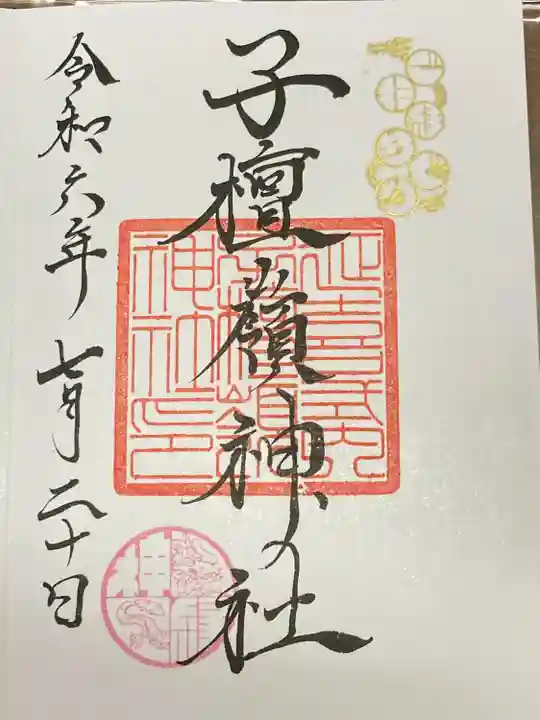 子檀嶺神社
延喜式
子檀嶺
神社印
令和六年七月二十日